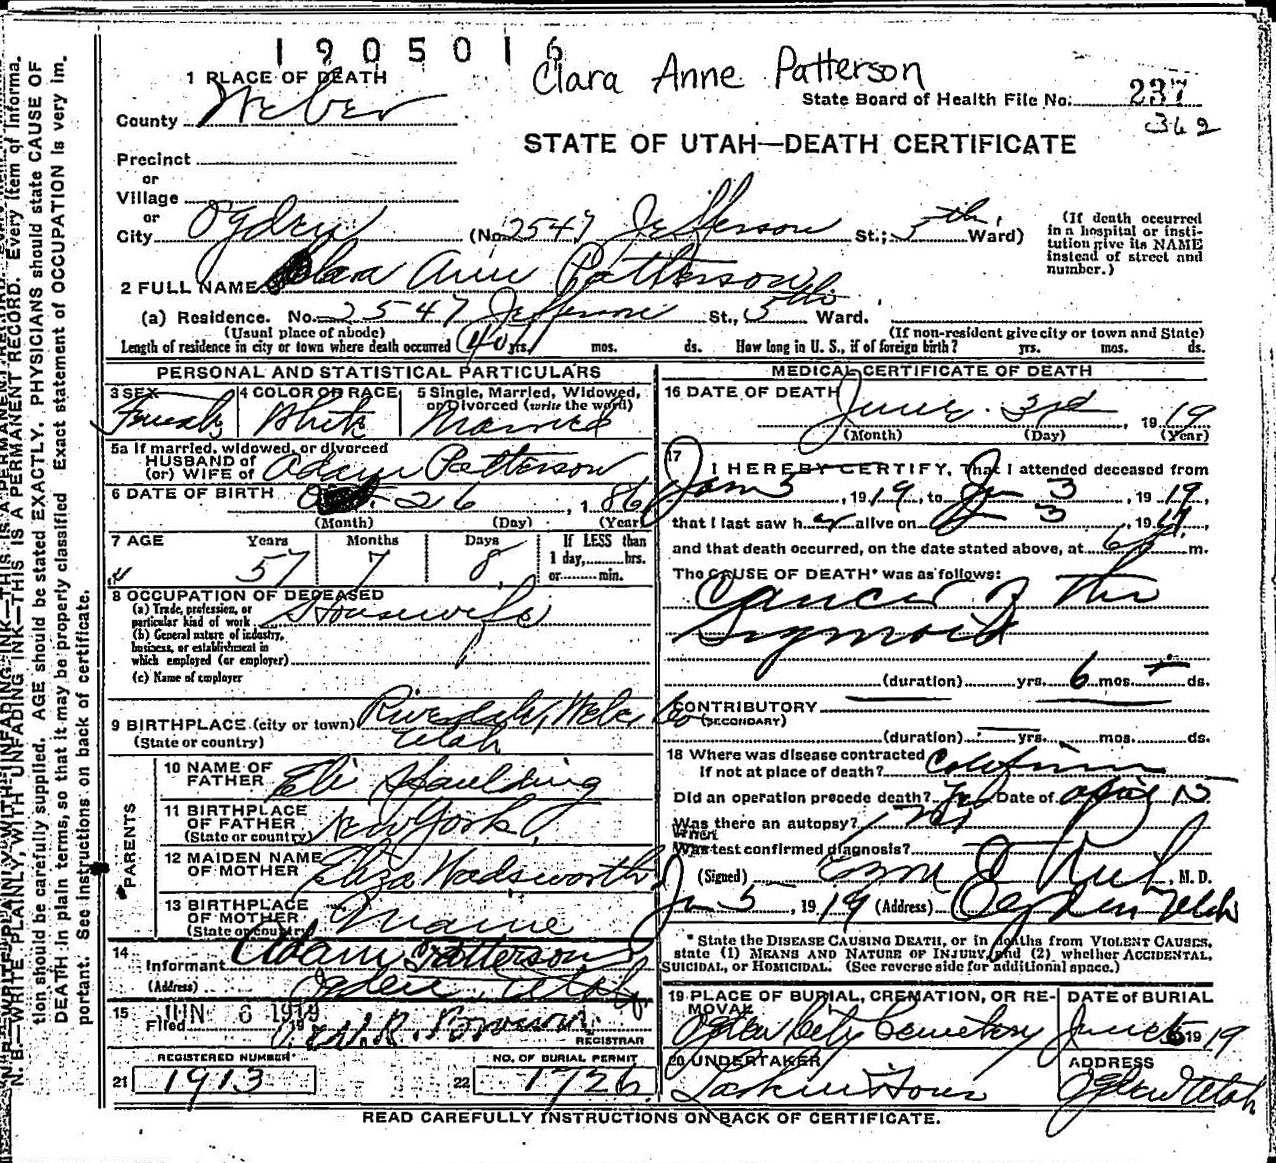 1905016
Clara Anne Patterson
1 PLACE OF DEATH
County Weber
State Board of Health File No. 237
362
STATE OF UTAH—DEATH CERTIFICATE
Precinct
or
Village
or
City Ogden (No. 2547 Jefferson St.; 5th Ward)
(If death occurred in a hospital or insti-
tution give its NAME
instead of street and
number.)
2 FULL NAME Clara Ann Patterson
(a) Residence. No. 2547 Jefferson St., 5th Ward.
(Usual place of abode) (If non-resident give city or town and State)
Length of residence in city or town where death occurred 40 yrs. mos. ds. How long in U. S., if of foreign birth? yrs. mos. ds.
PERSONAL AND STATISTICAL PARTICULARS
3 SEX Female
4 COLOR OR RACE White
5 Single, Married, Widowed, or Divorced (write the word) Married
5a If married, widowed, or divorced
HUSBAND of
(or) WIFE of Adam Patterson
6 DATE OF BIRTH 26, 1861
(Month) (Day) (Year)
7 AGE Years 57 Months 7 Days 8 If LESS than
1 day, hrs.
or min.
8 OCCUPATION OF DECEASED
(a) Trade, profession, or
particular kind of work Housewife
(b) General nature of industry,
business, or establishment in
which employed (or employer)
(c) Name of employer
9 BIRTHPLACE (city or town) Riverdale, Weber Co
(State or country) Utah
PARENTS
10 NAME OF
FATHER Eli Spaulding
11 BIRTHPLACE
OF FATHER
(State or country) New York
12 MAIDEN NAME
OF MOTHER Eliza Wadsworth
13 BIRTHPLACE
OF MOTHER
(State or country) Maine
14 Informant Adam Patterson
(Address) Ogden, Utah
15 Filed JUN 6 1919
REGISTRAR
REGISTERED NUMBER
21 1913
NO. OF BURIAL PERMIT
22 1726
MEDICAL CERTIFICATE OF DEATH
16 DATE OF DEATH June 3rd, 1919
(Month) (Day) (Year)
17 I HEREBY CERTIFY, That I attended deceased from
Jan 5, 1919, to Ju 3, 1919,
that I last saw her alive on Ju 3, 1919,
and that death occurred, on the date stated above, at 6 m.
The CAUSE OF DEATH* was as follows:
Cancer of the
Sigmoid
(duration) yrs. 6 mos. ds.
CONTRIBUTORY
(SECONDARY)
(duration) yrs. mos. ds.
18 Where was disease contracted
if not at place of death? California
Did an operation precede death? Yes Date of April 15
Was there an autopsy? No
What test confirmed diagnosis?
(Signed) M. D.
Ju 5, 1919 (Address) Ogden Utah
* State the DISEASE CAUSING DEATH, or in deaths from VIOLENT CAUSES,
state (1) MEANS AND NATURE OF INJURY, and (2) whether ACCIDENTAL,
SUICIDAL, or HOMICIDAL. (See reverse side for additional space.)
19 PLACE OF BURIAL, CREMATION, OR RE-
MOVAL Ogden City Cemetery
DATE of BURIAL June 5 1919
20 UNDERTAKER Larkin & Sons
ADDRESS Ogden Utah
READ CAREFULLY INSTRUCTIONS ON BACK OF CERTIFICATE.
N. B.—WRITE PLAINLY, WITH UNFADING INK—THIS IS A PERMANENT RECORD. Every item of informa-
tion should be carefully supplied. AGE should be stated EXACTLY. PHYSICIANS should state CAUSE OF
DEATH in plain terms, so that it may be properly classified. Exact statement of OCCUPATION is very im-
portant. See instructions on back of certificate.